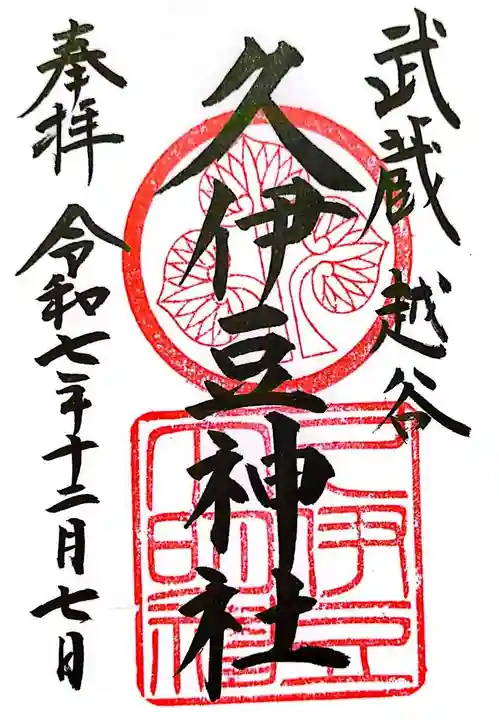 武蔵 越谷
久伊豆神社
奉拝 令和七年十二月七日